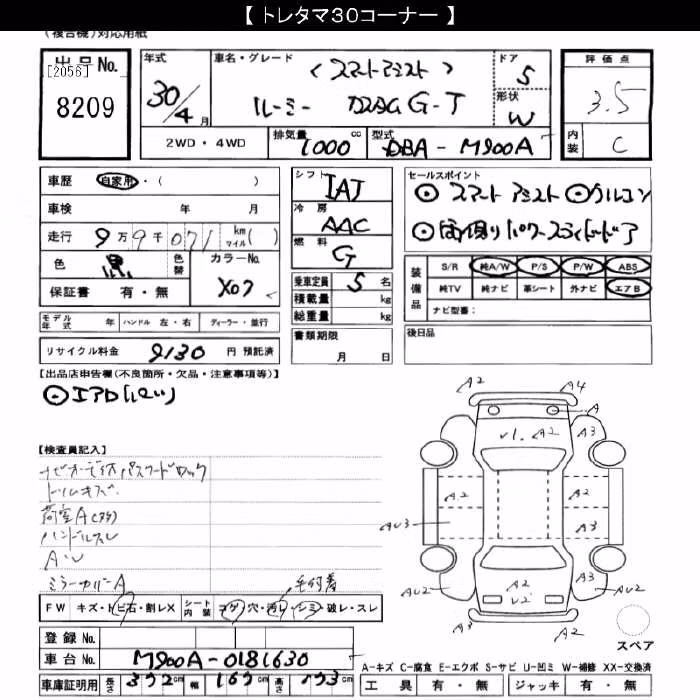 【 トレタマ３０コーナー 】
(複合機)対応用紙
出品No.
[2056]
8209
年式
30/4月
車名・グレード
(スマートアシスト)
ルーミー G-T
ドア
5
形状
W
評価点
3.5
内装
C
2WD・4WD
排気量
1000 cc
型式
DBA-M900A
車歴 自家用・( )
車検 年 月
走行 9万9千071 km マイル( )
色 黒 色替
カラーNo.
X07
保証書 有・無
シフト
IAT
冷房
AAC
燃料
G
乗車定員 5 名
積載量 kg
総重量 kg
書類期限
月 日
セールスポイント
⊙スマートアシスト ⊙アルコン
⊙両側パワースライドドア
装備品
S/R 純A/W P/S P/W ABS
純TV 純ナビ 革シート 外ナビ エアB
ナビ型番:
後日品
モデル年式 年 ハンドル 左・右 ディーラー・並行
リサイクル料金 9130 円 預託済
【出品店申告欄(不良箇所・欠品・注意事項等)】
【検査員記入】
ナビオーディオパスワードロック
トリムキズ
荷室A
ハンドルスレ
A・U
ミラーカバーA
毛付着
FW キズ・トビ石・割レX シート内装 コゲ・穴・汚レ・シミ・破レ・スレ
登録No.
車台No. M900A-0181630
車庫証明用 長さ 372 幅 167 高さ 173
A2 A4
A
U1. A2 A3
A2 A2
AU3 A3
A2 A3
U2
AU2 AU2
A3 A2
スペア
A-キズ C-腐食 E-エクボ S-サビ U-凹ミ W-補修 XX-交換済
工具 有・無 ジャッキ 有・無